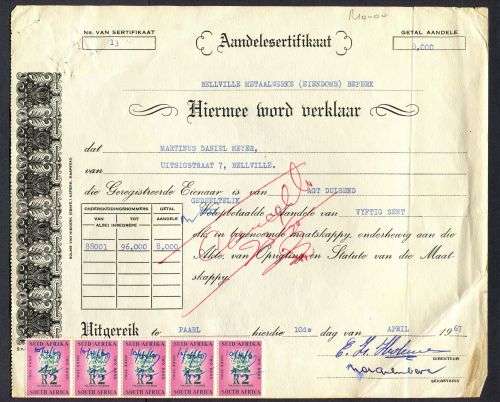 R10-00
No. VAN SERTIFIKAAT
13
Aandelesertifikaat
GETAL AANDELE
8,000
BELLVILLE METAALWERKE (EIENDOMS) BEPERK
Hiermee word verklaar
dat MARTINUS DANIEL MEYER,
van UITSIGSTRAAT 7, BELLVILLE.
die Geregistreerde Eienaar is van AGT DUISEND
GEDEELTELIK
Volopbetaalde Aandele van VYFTIG SENT
ONDERSKEIDINGSNOMMERS
GETAL
VAN TOT
AANDELE
ALBEI INGESLOTE
88001 96,000 8,000
elk, in bogenoemde maatskappy, onderhewig aan die
Akte van Oprigting en Statute van die Maat-
skappy.
Uitgereik te PAARL hierdie 10de dag van APRIL 1967
DIREKTEUR
SEKRETARIS
SUID AFRIKA SUID AFRIKA SUID AFRIKA SUID AFRIKA SUID AFRIKA
R2 R2 R2 R2 R2
SOUTH AFRICA SOUTH AFRICA SOUTH AFRICA SOUTH AFRICA SOUTH AFRICA